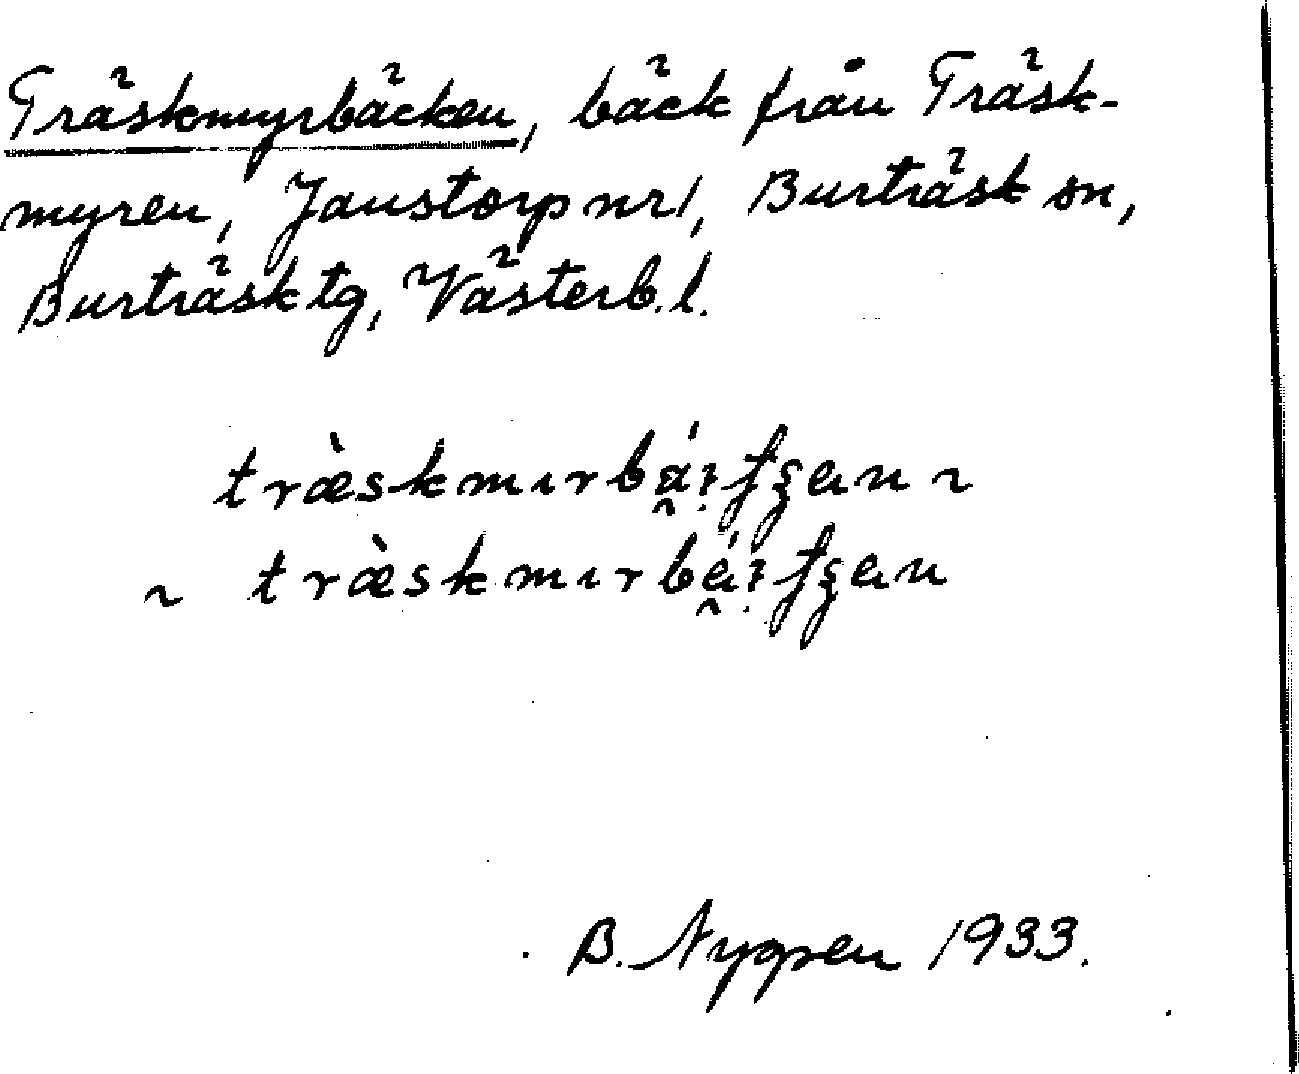 Träskmyrbäcken, bäck från Träsk-
myren, Janstorp nr 1, Burträsk sn,
Burträsk tg, Västerb. l.
træ̀skmır
~ træ̀skmır
B. Nygren 1933.